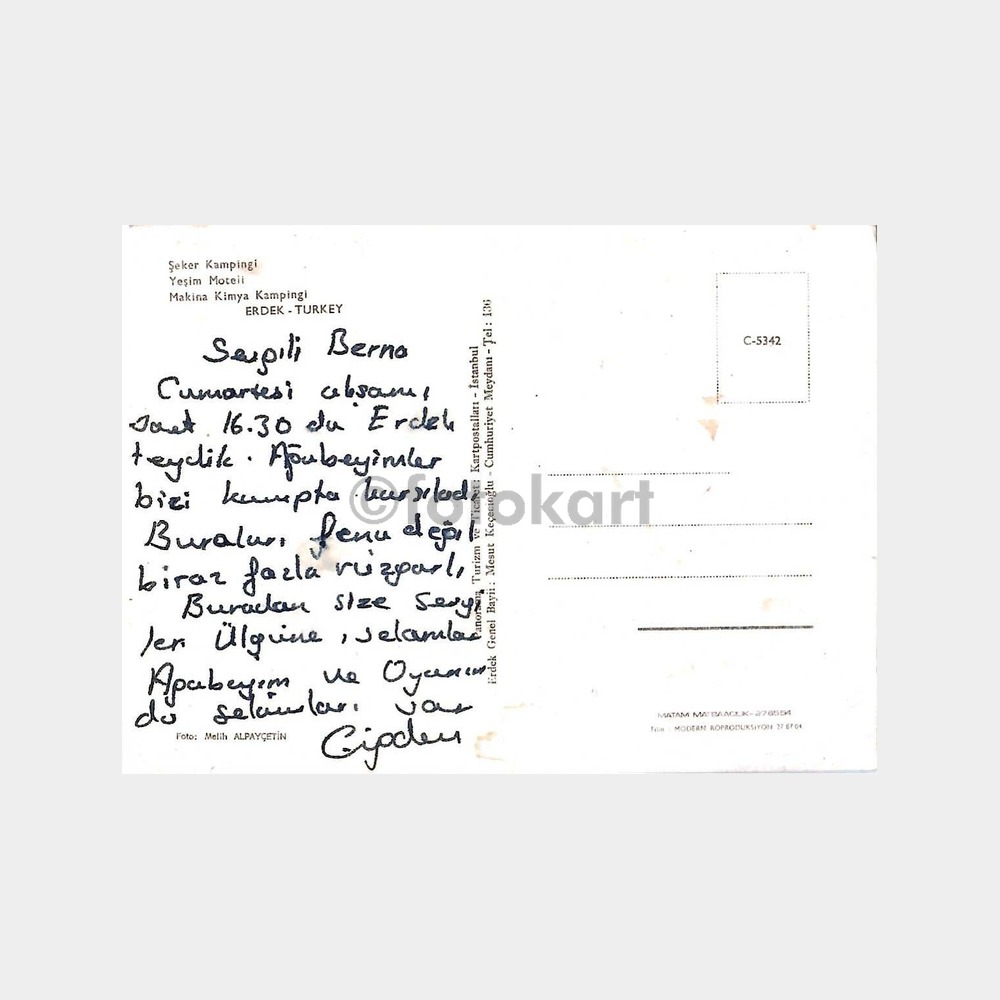 Şeker Kampingi
Yeşim Moteli
Makina Kimya Kampingi
ERDEK - TURKEY
Sevgili Berna
Cumartesi akşamı
saat 16.30 da Erdek
teydik. Ağabeyimler
bizi kampta karşıladı
Buraları fena değil
biraz fazla rüzgarlı,
Buradan size sevgi
ler Ülgüne, selamlar
Ağabeyim ve Oyanın
da selâmları var
Foto: Melih ALPAYÇETİN
Panorama Turizm ve Ticaret: Kartpostalları - İstanbul
Erdek Genel Bayii: Mesut Keçecioğlu - Cumhuriyet Meydanı - Tel: 136
C-5342
©fotokart
MATAM MATBAACILIK-276554
Film : MODERN ROPRODUKSIYON 27 87 04